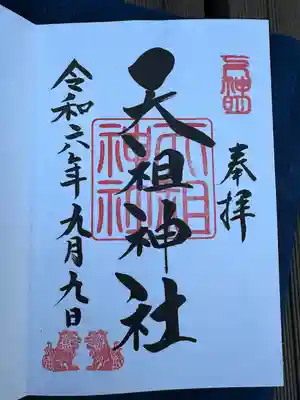 奉拝
天祖神社
天祖神社
令和六年九月九日